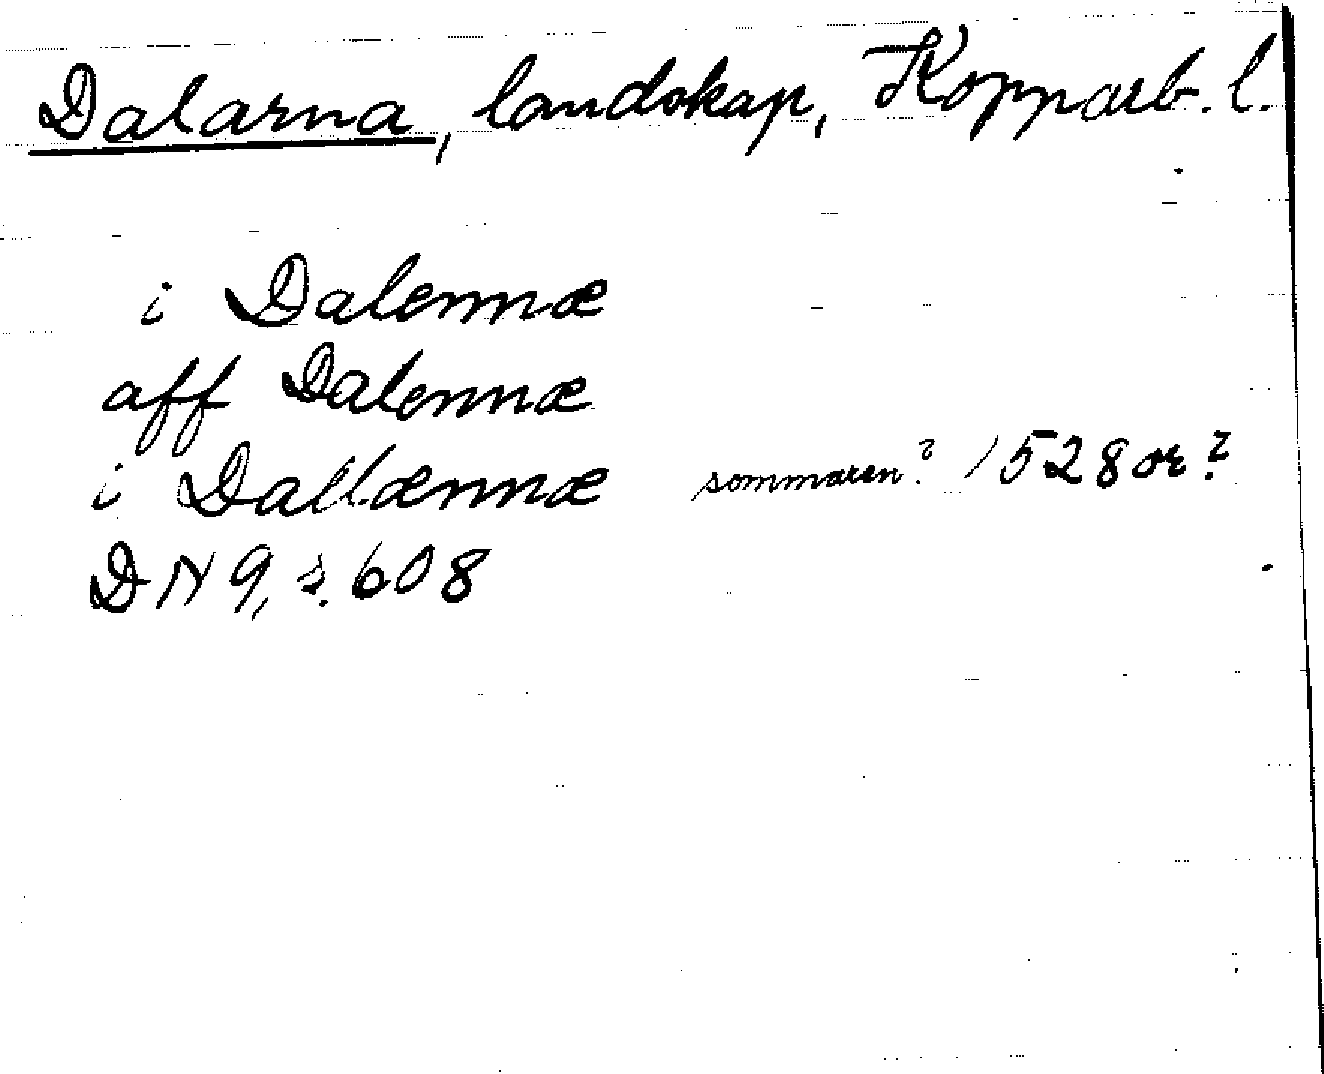 Dalarna, landskap, Kopparb. l.
i Dalernæ
aff Dalernæ
i Dallærnnæ sommaren? 1528 or?
DN 9, s. 608